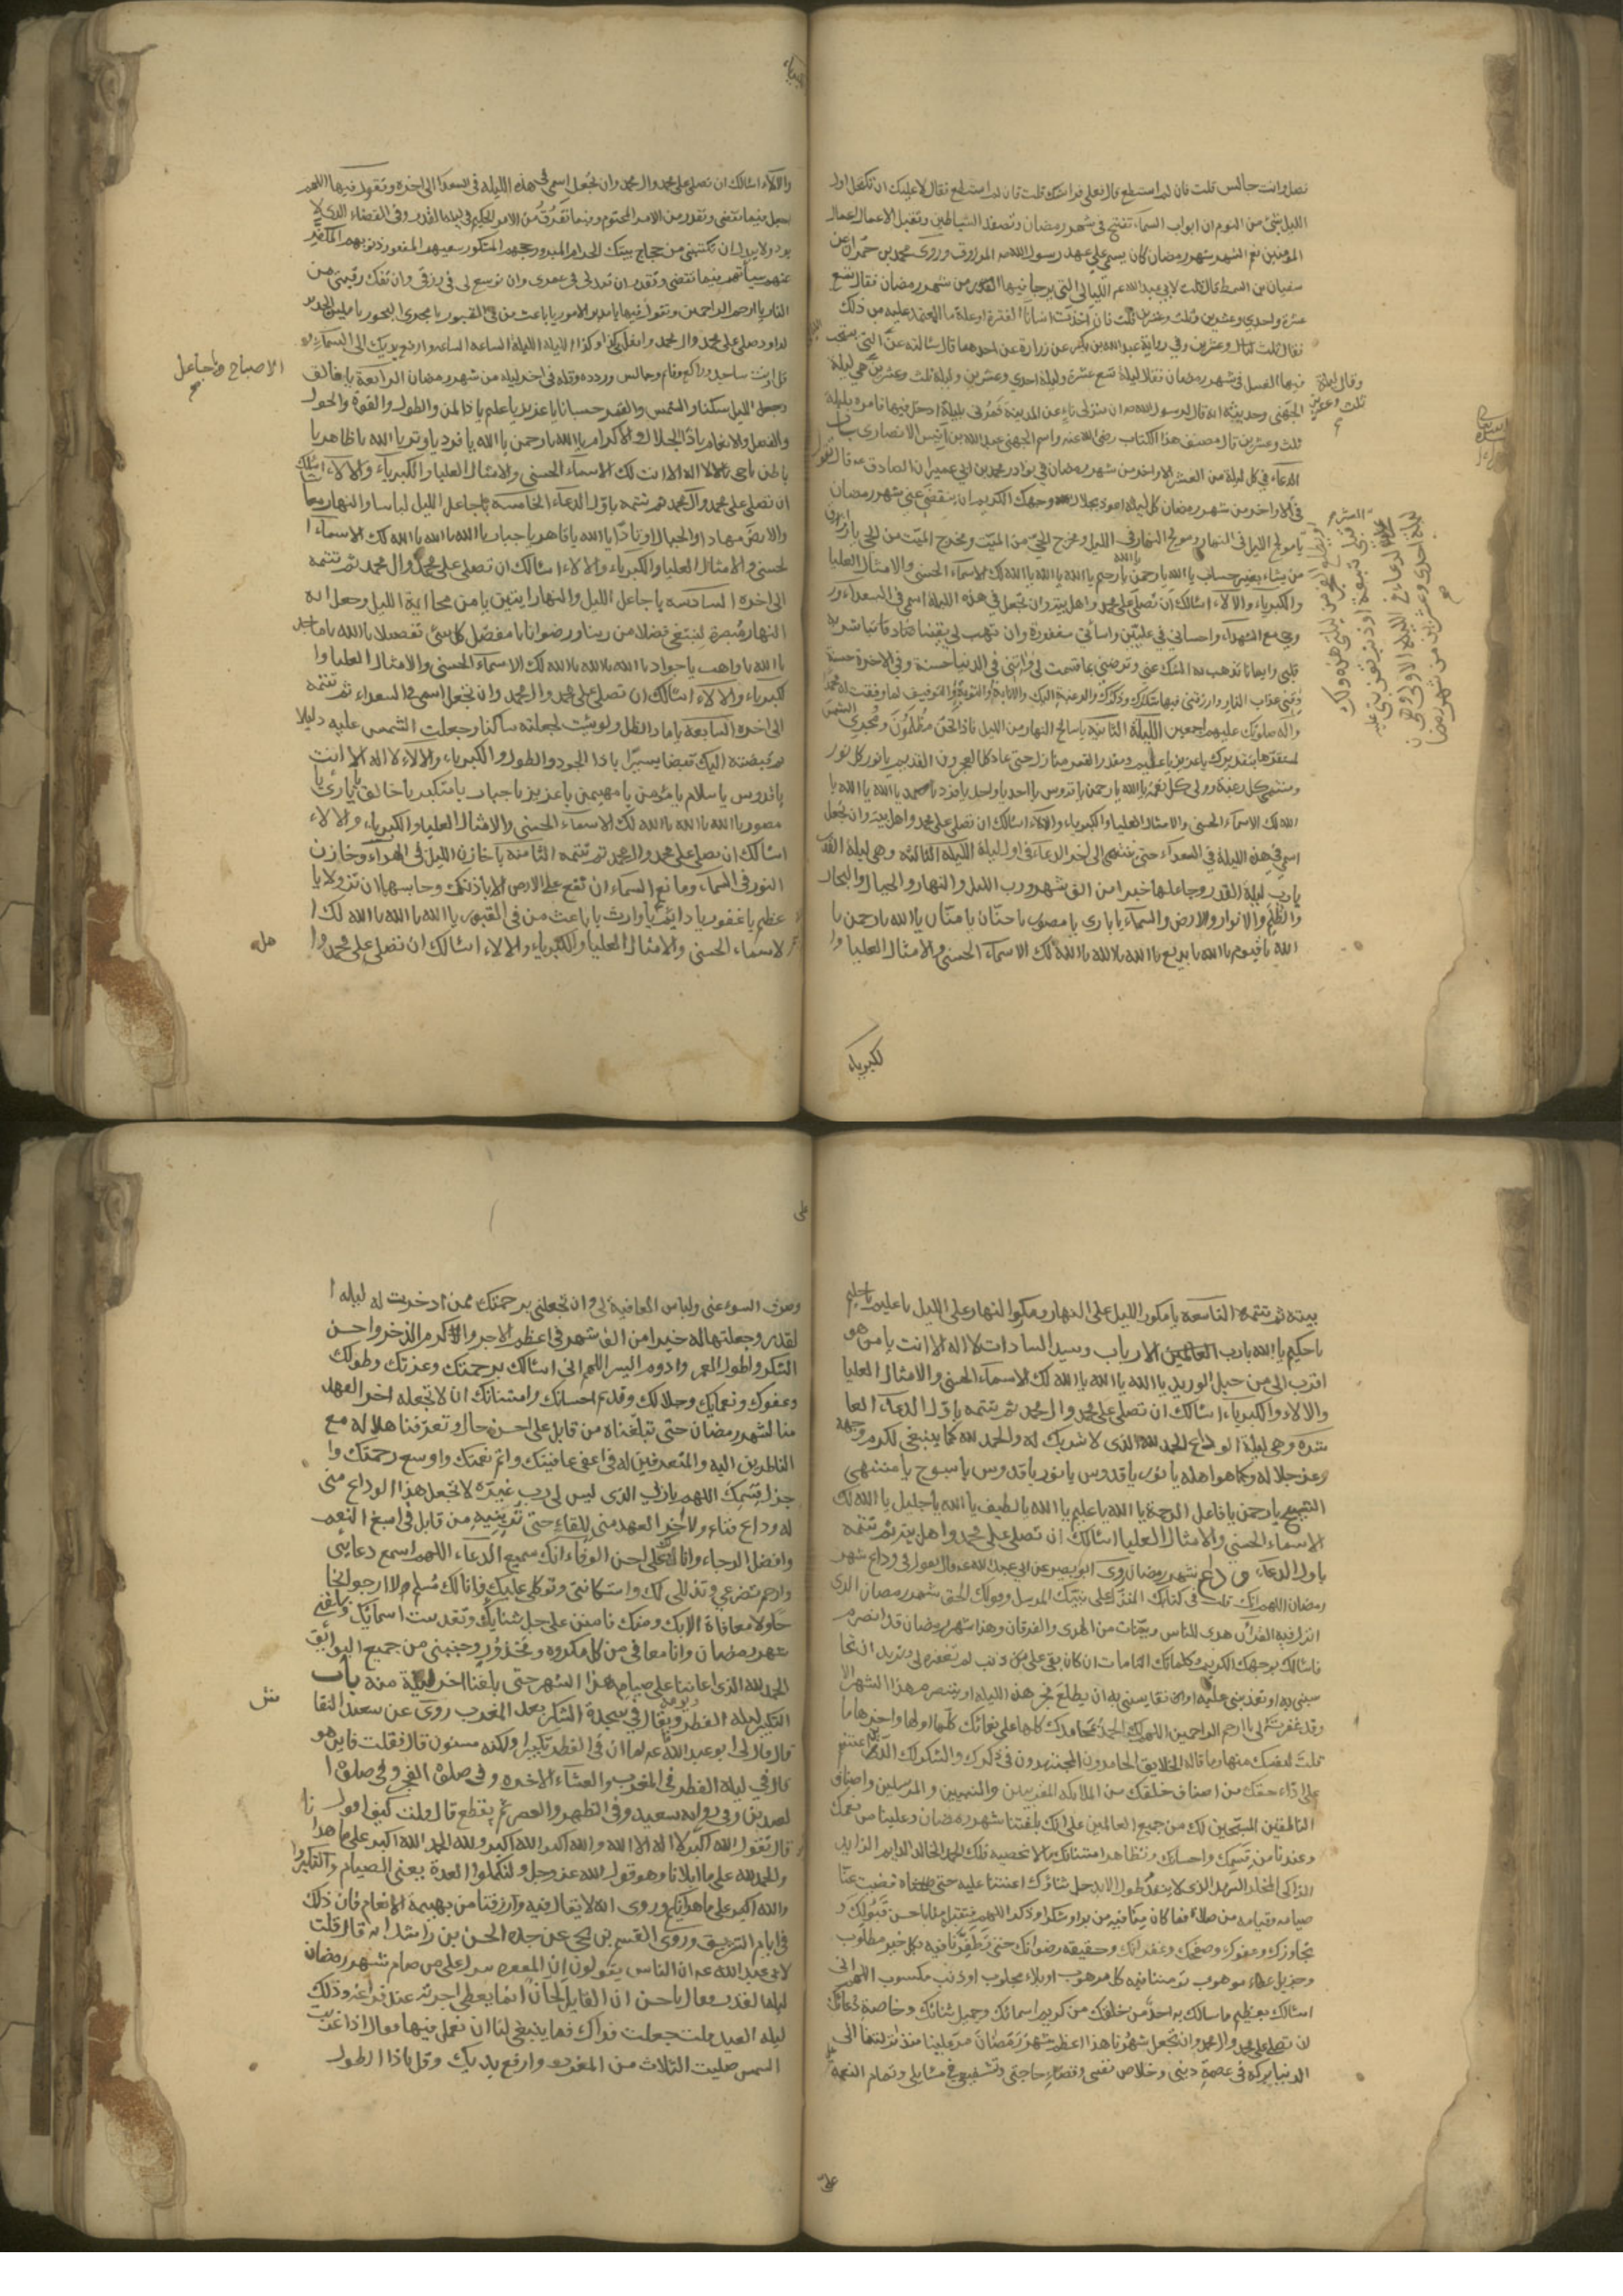 فصل وانت جالس قلت فان لم استطع قال فعلى فراشك قلت فان لم استطع فقال لا عليك ان تكتحل اول
الليل بشئ من النوم ان ابواب السماء تفتح في شهر رمضان وتصفد الشياطين وتقبل الاعمال اعمال
المؤمنين نعم الشهر شهر رمضان كان يسمى على عهد رسول الله المرزوق وروى محمد بن حمران عن
سفيان بن السمط قال قلت لابي عبد الله عم الليالي التي يرجا فيها من شهر رمضان فقال تسع
عشرة واحدي وعشرين وثلث وعشرين قلت فان اخذت انسانا الفترة او علة ما المعتمد عليه من ذلك
فقال ثلث وعشرين وفي رواية عبد الله بن بكير عن زرارة عن احدهما قال سالته عن التي يستحب
فيها الغسل في شهر رمضان فقال ليلة تسع عشرة وليلة احدي وعشرين وليلة ثلث وعشرين هي ليلة
وقال ليلة ثلث وعشرين
الجهني وحديثه انه قال لرسول الله ان منزلي ناء عن المدينة فمرني بليلة ادخل فيها فامره بليلة
ثلث وعشرين قال مصنف هذا الكتاب رضى الله عنه واسم الجهني عبد الله بن انيس الانصاري باب
الدعاء في كل ليلة من العشر الاواخر من شهر رمضان في نوادر محمد بن ابي عمير ان الصادق قال تقول
في الاواخر من شهر رمضان كل ليلة اعوذ بجلال وجهك الكريم ان ينقضي عني شهر رمضان
يا مولج الليل في النهار ومولج النهار في الليل ومخرج الحي من الميت ومخرج الميت من الحي يا رازق
من يشاء بغير حساب يا الله يا رحمن يا رحيم يا الله يا الله يا الله لك الاسماء الحسنى والامثال العليا
والكبرياء والالاء اسالك ان تصلي على محمد واهل بيته وان تجعل في هذه الليلة اسمي في السعداء و
روحي مع الشهداء واحساني في عليين واساتي مغفورة وان تهب لي يقينا صادقا تباشر به
قلبي وايمانا تذهب به الشك عني وترضيني بما قسمت لي واتني في الدنيا حسنة وفي الاخرة حسنة
وقني عذاب النار وارزقني فيها شكرك وذكرك والرغبة اليك والانابة والتوبة والتوفيق لما وفقت له محمدا
واله صلواتك عليهم اجمعين الليلة الثانية يا سالخ النهار من الليل فاذا نحن مظلمون ومجري الشمس
لمستقرها بتقديرك يا عزيز يا عليم ومقدر القمر منازل حتى عاد كالعرجون القديم يا نور كل نور
ومنتهى كل رغبة وولي كل نعمة يا الله يا رحمن يا قدوس يا احد يا واحد يا فرد يا صمد يا الله يا الله يا
الله لك الاسماء الحسنى والامثال العليا والكبرياء والالاء اسالك ان تصلي على محمد واهل بيته وان تجعل
اسمي في هذه الليلة في السعداء حتى تنتهي الى اخر الدعاء في اول ليلة الليلة الثالثة وهي ليلة القدر
يا رب ليلة القدر وجاعلها خيرا من الف شهر ورب الليل والنهار والجبال والبحار
والظلم والانوار والارض والسماء يا باري يا مصور يا حنان يا منان يا الله يا رحمن يا
الله يا قيوم يا الله يا بديع يا الله يا الله يا الله لك الاسماء الحسنى والامثال العليا وا
لكبرياء
والالاء اسالك ان تصلي على محمد وال محمد وان تجعل اسمي في هذه الليلة في السعداء الى اخره وتقول فيها اللهم
اجعل فيما تقضي وتقدر من الامر المحتوم وفيما تفرق من الامر الحكيم في ليلة القدر وفي القضاء الذي لا
يرد ولا يبدل ان تكتبني من حجاج بيتك الحرام المبرور حجهم المشكور سعيهم المغفور ذنوبهم المكفر
عنهم سياتهم فيما تقضي وتقدر ان تمد لي في عمري وان توسع لي في رزقي وان تفك رقبتي من
النار يا ارحم الراحمين وتقول فيها يا مدبر الامور يا باعث من في القبور يا مجري البحور يا ملين الحديد
لداود صل على محمد وال محمد وافعل بي كذا وكذا الليلة الليلة الساعة الساعة وارفع يديك الى السماء
ساجد وراكع وقائم وجالس وردده وقله في اخر ليلة من شهر رمضان الرابعة يا فالق
الاصباح ويا جاعل
وجعل الليل سكنا والشمس والقمر حسبانا يا عزيز يا عليم يا ذا المن والطول والقوة والحول
والفضل والانعام يا ذا الجلال والاكرام يا الله يا رحمن يا الله يا فرد يا وتر يا الله يا ظاهر يا
باطن يا حي لا اله الا انت لك الاسماء الحسنى والامثال العليا والكبرياء والالاء اسالك
ان تصلي على محمد وال محمد ثم تتمه باول الدعاء الخامسة يا جاعل الليل لباسا والنهار معاشا
والارض مهادا والجبال اوتادا يا الله يا قاهر يا جبار يا الله يا الله يا الله لك الاسماء ا
لحسنى والامثال العليا والكبرياء والالاء اسالك ان تصلي على محمد وال محمد ثم تتمه
الى اخره السادسة يا جاعل الليل والنهار ايتين يا من محا اية الليل وجعل اية
النهار مبصرة لنبتغي فضلا من ربنا ورضوانا يا مفصل كل شئ تفصيلا يا الله يا ماجد
يا الله يا واهب يا جواد يا الله يا الله يا الله لك الاسماء الحسنى والامثال العليا وا
لكبرياء والالاء اسالك ان تصلي على محمد وال محمد وان تجعل اسمي في السعداء ثم تتمه
الى اخره السابعة يا ماد الظل ولو شئت لجعلته ساكنا وجعلت الشمس عليه دليلا
ثم قبضته اليك قبضا يسيرا يا ذا الجود والطول والكبرياء والالاء لا اله الا انت
يا قدوس يا سلام يا مؤمن يا مهيمن يا عزيز يا جبار يا متكبر يا خالق يا بارئ يا
مصور يا الله يا الله يا الله لك الاسماء الحسنى والامثال العليا والكبرياء والالاء
اسالك ان تصلي على محمد وال محمد ثم تتمه الثامنة يا خازن الليل في الهواء وخازن
النور في السماء ومانع السماء ان تقع على الارض الا باذنك وحابسهما ان تزولا يا
عظيم يا غفور يا دائم يا وارث يا باعث من في القبور يا الله يا الله يا الله لك ا
لاسماء الحسنى والامثال العليا والكبرياء والالاء اسالك ان تصلي على محمد وا
هل
بيته ثم تتمه التاسعة يا مكور الليل على النهار ومكور النهار على الليل يا عليم يا حليم
يا حكيم يا الله يا رب العالمين الارباب وسيد السادات لا اله الا انت يا من هو
اقرب الي من حبل الوريد يا الله يا الله يا الله لك الاسماء الحسنى والامثال العليا
والالاء والكبرياء اسالك ان تصلي على محمد وال محمد ثم تتمه باول الدعاء العا
شرة وهي ليلة الوداع الحمد لله الذي لا شريك له والحمد لله كما ينبغي لكرم وجهه
وعز جلاله وكما هو اهله يا نور يا قدوس يا نور يا قدوس يا سبوح يا منتهى
التسبيح يا رحمن يا فاعل الرحمة يا الله يا عليم يا الله يا لطيف يا الله يا جليل يا الله لك
الاسماء الحسنى والامثال العليا اسالك ان تصلي على محمد واهل بيته ثم تتمه
باول الدعاء وداع شهر رمضان روى ابو بصير عن ابي عبد الله عم قال تقول في وداع شهر
رمضان اللهم انك قلت في كتابك المنزل على نبيك المرسل وقولك الحق شهر رمضان الذي
انزل فيه القرآن هدى للناس وبينات من الهدى والفرقان وهذا شهر رمضان قد انصرم
فاسالك بوجهك الكريم وكلماتك التامات ان كان بقي على من ذنب لم تغفره لي وتريد ان تحا
سبني به او تعذبني عليه او ان تقايسني به ان يطلع فجر هذه الليلة او ينصرم هذا الشهر الا
وقد غفرته لي يا ارحم الراحمين اللهم لك الحمد بمحامدك كلها على نعمائك كلها اولها واخرها ما
قلت لنفسك منها وما قاله الخلايق الحامدون المجتهدون في ذكرك والشكر لك الذين اعنتهم
على اداء حقك من اصناف خلقك من الملائكة المقربين والنبيين والمرسلين واصناف
الناطقين المسبحين لك من جميع العالمين على انك بلغتنا شهر رمضان وعلينا من نعمك
وعندنا من قسمك واحسانك وتظاهر امتنانك ما لا نحصيه فلك الحمد الخالد الدايم الزايد
الذي لا ينفد طول الابد جل ثناؤك اعنتنا عليه حتى قضيت عنا
صيامه وقيامه من صلاة فما كان منا فيه من بر او شكر او ذكر اللهم فتقبله منا باحسن قبولك و
تجاوزك وعفوك وصفحك وغفرانك وحقيقة رضوانك حتى تظفرنا فيه بكل خير مطلوب
وجزيل عطاء موهوب تؤمننا فيه كل مرهوب او بلاء مجلوب او ذنب مكسوب اللهم اني
اسالك بعظيم ما سالك به احد من خلقك من كريم اسمائك وجميل ثنائك وخاصة دعائك
ان تصلي على محمد وال محمد وان تجعل شهرنا هذا اعظم شهر رمضان مر علينا منذ انزلتنا الى
الدنيا بركة في عصمة ديني وخلاص نفسي وقضاء حاجتي وتشفيعي في مسايلي وتمام النعمة
علي
وصرف السوء عني ولباس العافية لي وان تجعلني برحمتك ممن ادخرت له ليلة ا
لقدر وجعلتها له خيرا من الف شهر في اعظم الاجر واكرم الذخر واحسن
الشكر واطول العمر وادوم اليسر اللهم اني اسالك برحمتك وعزتك وطولك
وعفوك ونعمائك وجلالك وقديم احسانك وامتنانك ان لا تجعله اخر العهد
منا لشهر رمضان حتى تبلغناه من قابل على احسن حال وتعرفنا هلاله مع
الناظرين اليه والمتعرفين له في اعفى عافيتك واتم نعمتك واوسع رحمتك وا
جزل قسمك اللهم يا ربي الذي ليس لي رب غيره لا تجعل هذا الوداع مني
له وداع فناء ولا اخر العهد مني للقاء حتى ترينيه من قابل في اسبغ النعم
وافضل الرجاء وانا لك على احسن الوفاء انك سميع الدعاء اللهم اسمع دعائي
وارحم تضرعي وتذللي لك واستكانتي وتوكلي عليك فانا لك مسلم لا ارجو نجا
حا ولا معافاة الا بك ومنك فامنن علي جل ثناؤك وتقدست اسماؤك وبلغني
شهر رمضان وانا معافى من كل مكروه ومحذور وجنبني من جميع البوائق
الحمد لله الذي اعاننا على صيام هذا الشهر حتى بلغنا اخر ليلة منه باب
التكبير ليلة الفطر ويومه ويقال في سجدة الشكر بعد المغرب روى عن سعيد النقا
ش
قال قال لي ابو عبد الله عم اما ان في الفطر تكبيرا ولكنه مسنون قال فقلت فاين هو
قال في ليلة الفطر في المغرب والعشاء الاخرة وفي صلوة الفجر وفي صلوة ا
لعيدين وفي رواية سعيد وفي الظهر والعصر ثم يقطع قال قلت كيف اقول
قال تقول الله اكبر لا اله الا الله والله اكبر الله اكبر ولله الحمد الله اكبر على ما هدانا
والحمد لله على ما ابلانا وهو قول الله عز وجل ولتكملوا العدة يعني الصيام ولتكبروا
والله اكبر على ما هداكم وروى انه لا يقال فيه ورزقنا من بهيمة الانعام فان ذلك
في ايام التشريق وروى القسم بن يحيى عن جده الحسن بن راشد انه قال قلت
لابي عبد الله عم ان الناس يقولون ان المغفرة على من صام شهر رمضان
ليلة القدر فقال يا حسن ان القايل لحان انما يعطى اجرته عند فراغه وذلك
ليلة العيد قلت جعلت فداك فما ينبغي لنا ان نعمل فيها فقال اذا غربت
الشمس صليت الثلاث من المغرب وارفع يديك وقل يا ذا الطول